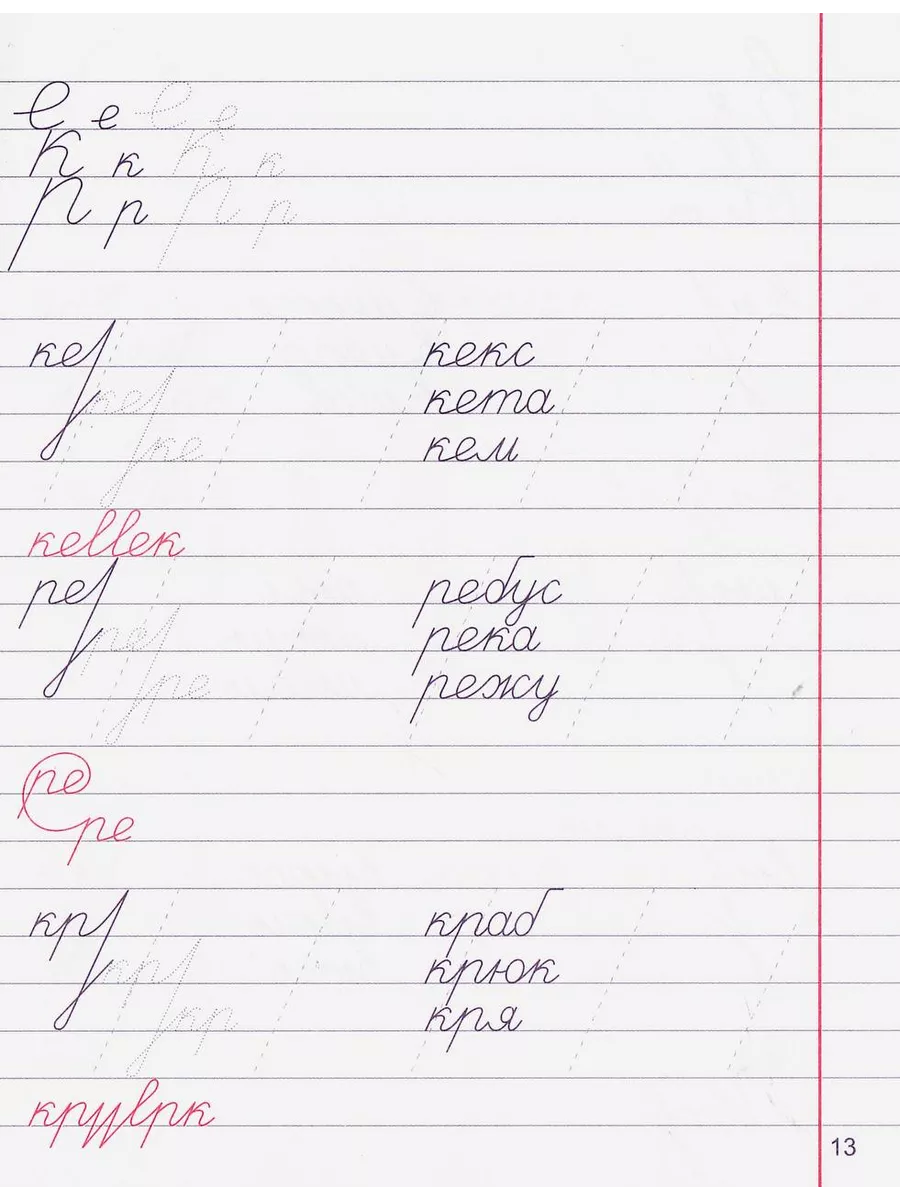 Е е Е е
К к К к
Р р Р р
ке кекс
ке кета
ке кем
ре ребус
ре река
ре режу
ре
ре
кр краб
кр крюк
кр кря
13